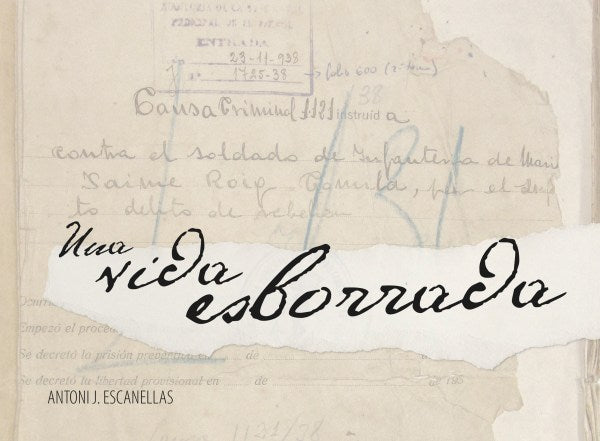 ENTRADA
23-11-938
1725-38 → folio 600 (2º tomo)
38
Causa Criminal 1121 instruida
contra el soldado de Infantería de Mari
Jaime Roig Tomila, por el
to delito de rebelión
Una
vida
esborrada
Ocurri
Empezó el proced
Se decretó la prisión preventiva en de
Se decretó la libertad provisional en de de 193
ANTONI J. ESCANELLAS
1121/38